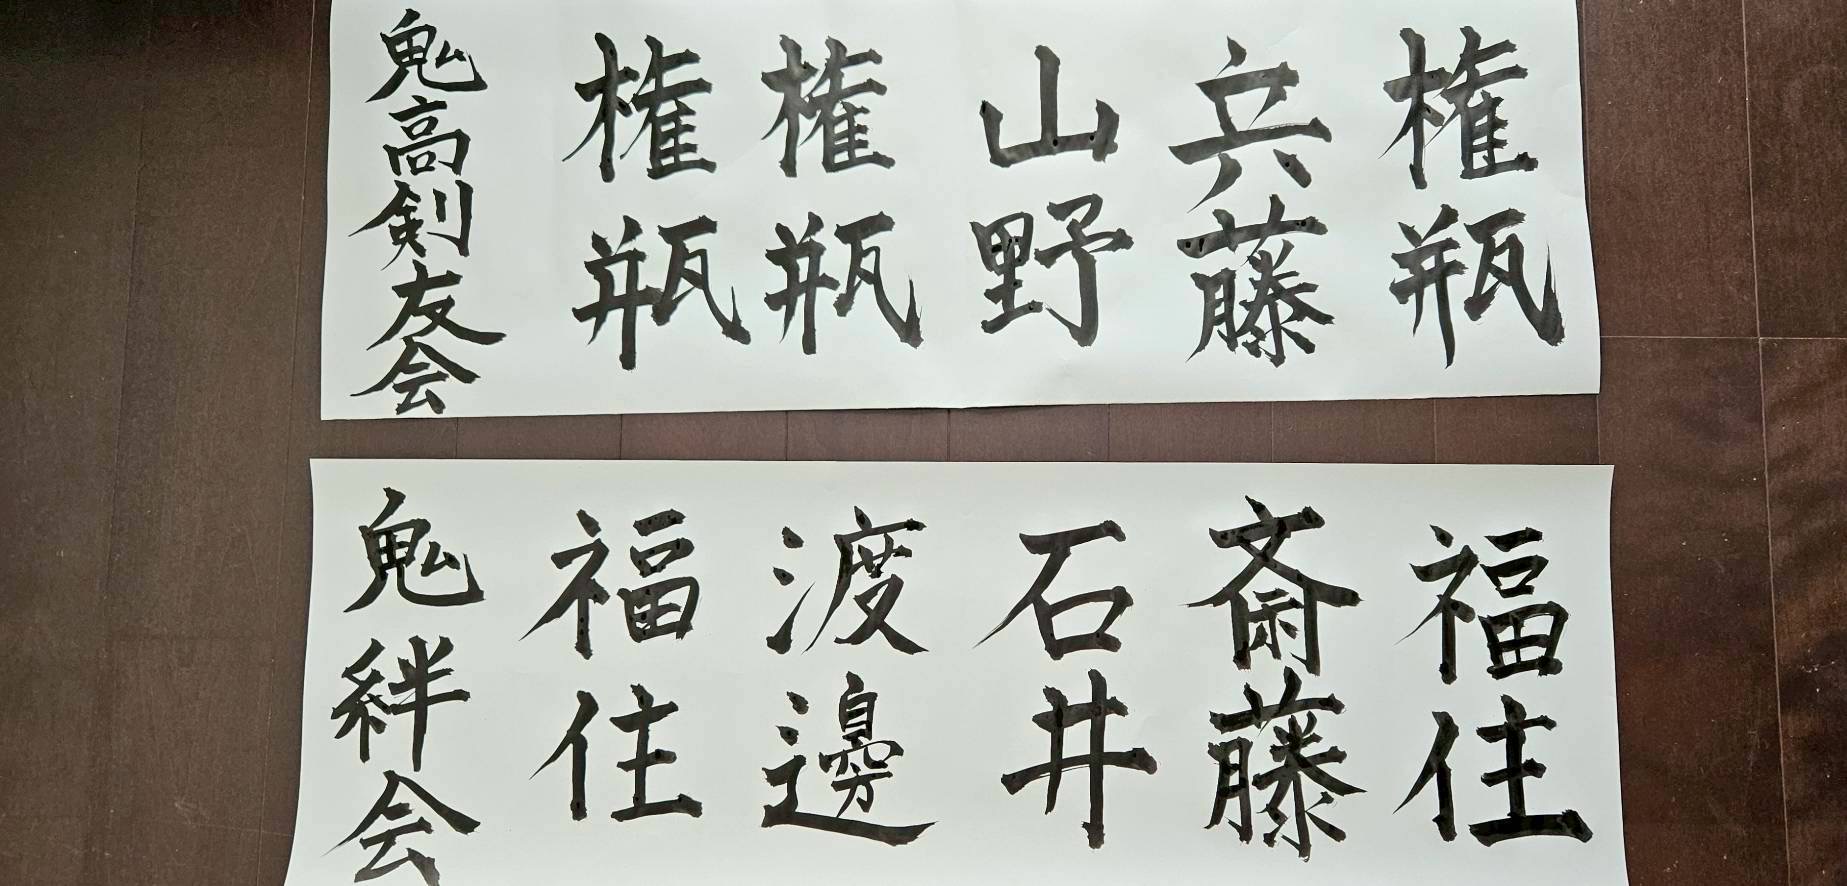 権瓶
兵藤
山野
権瓶
権瓶
鬼高剣友会
福住
斎藤
石井
渡邊
福住
鬼絆会